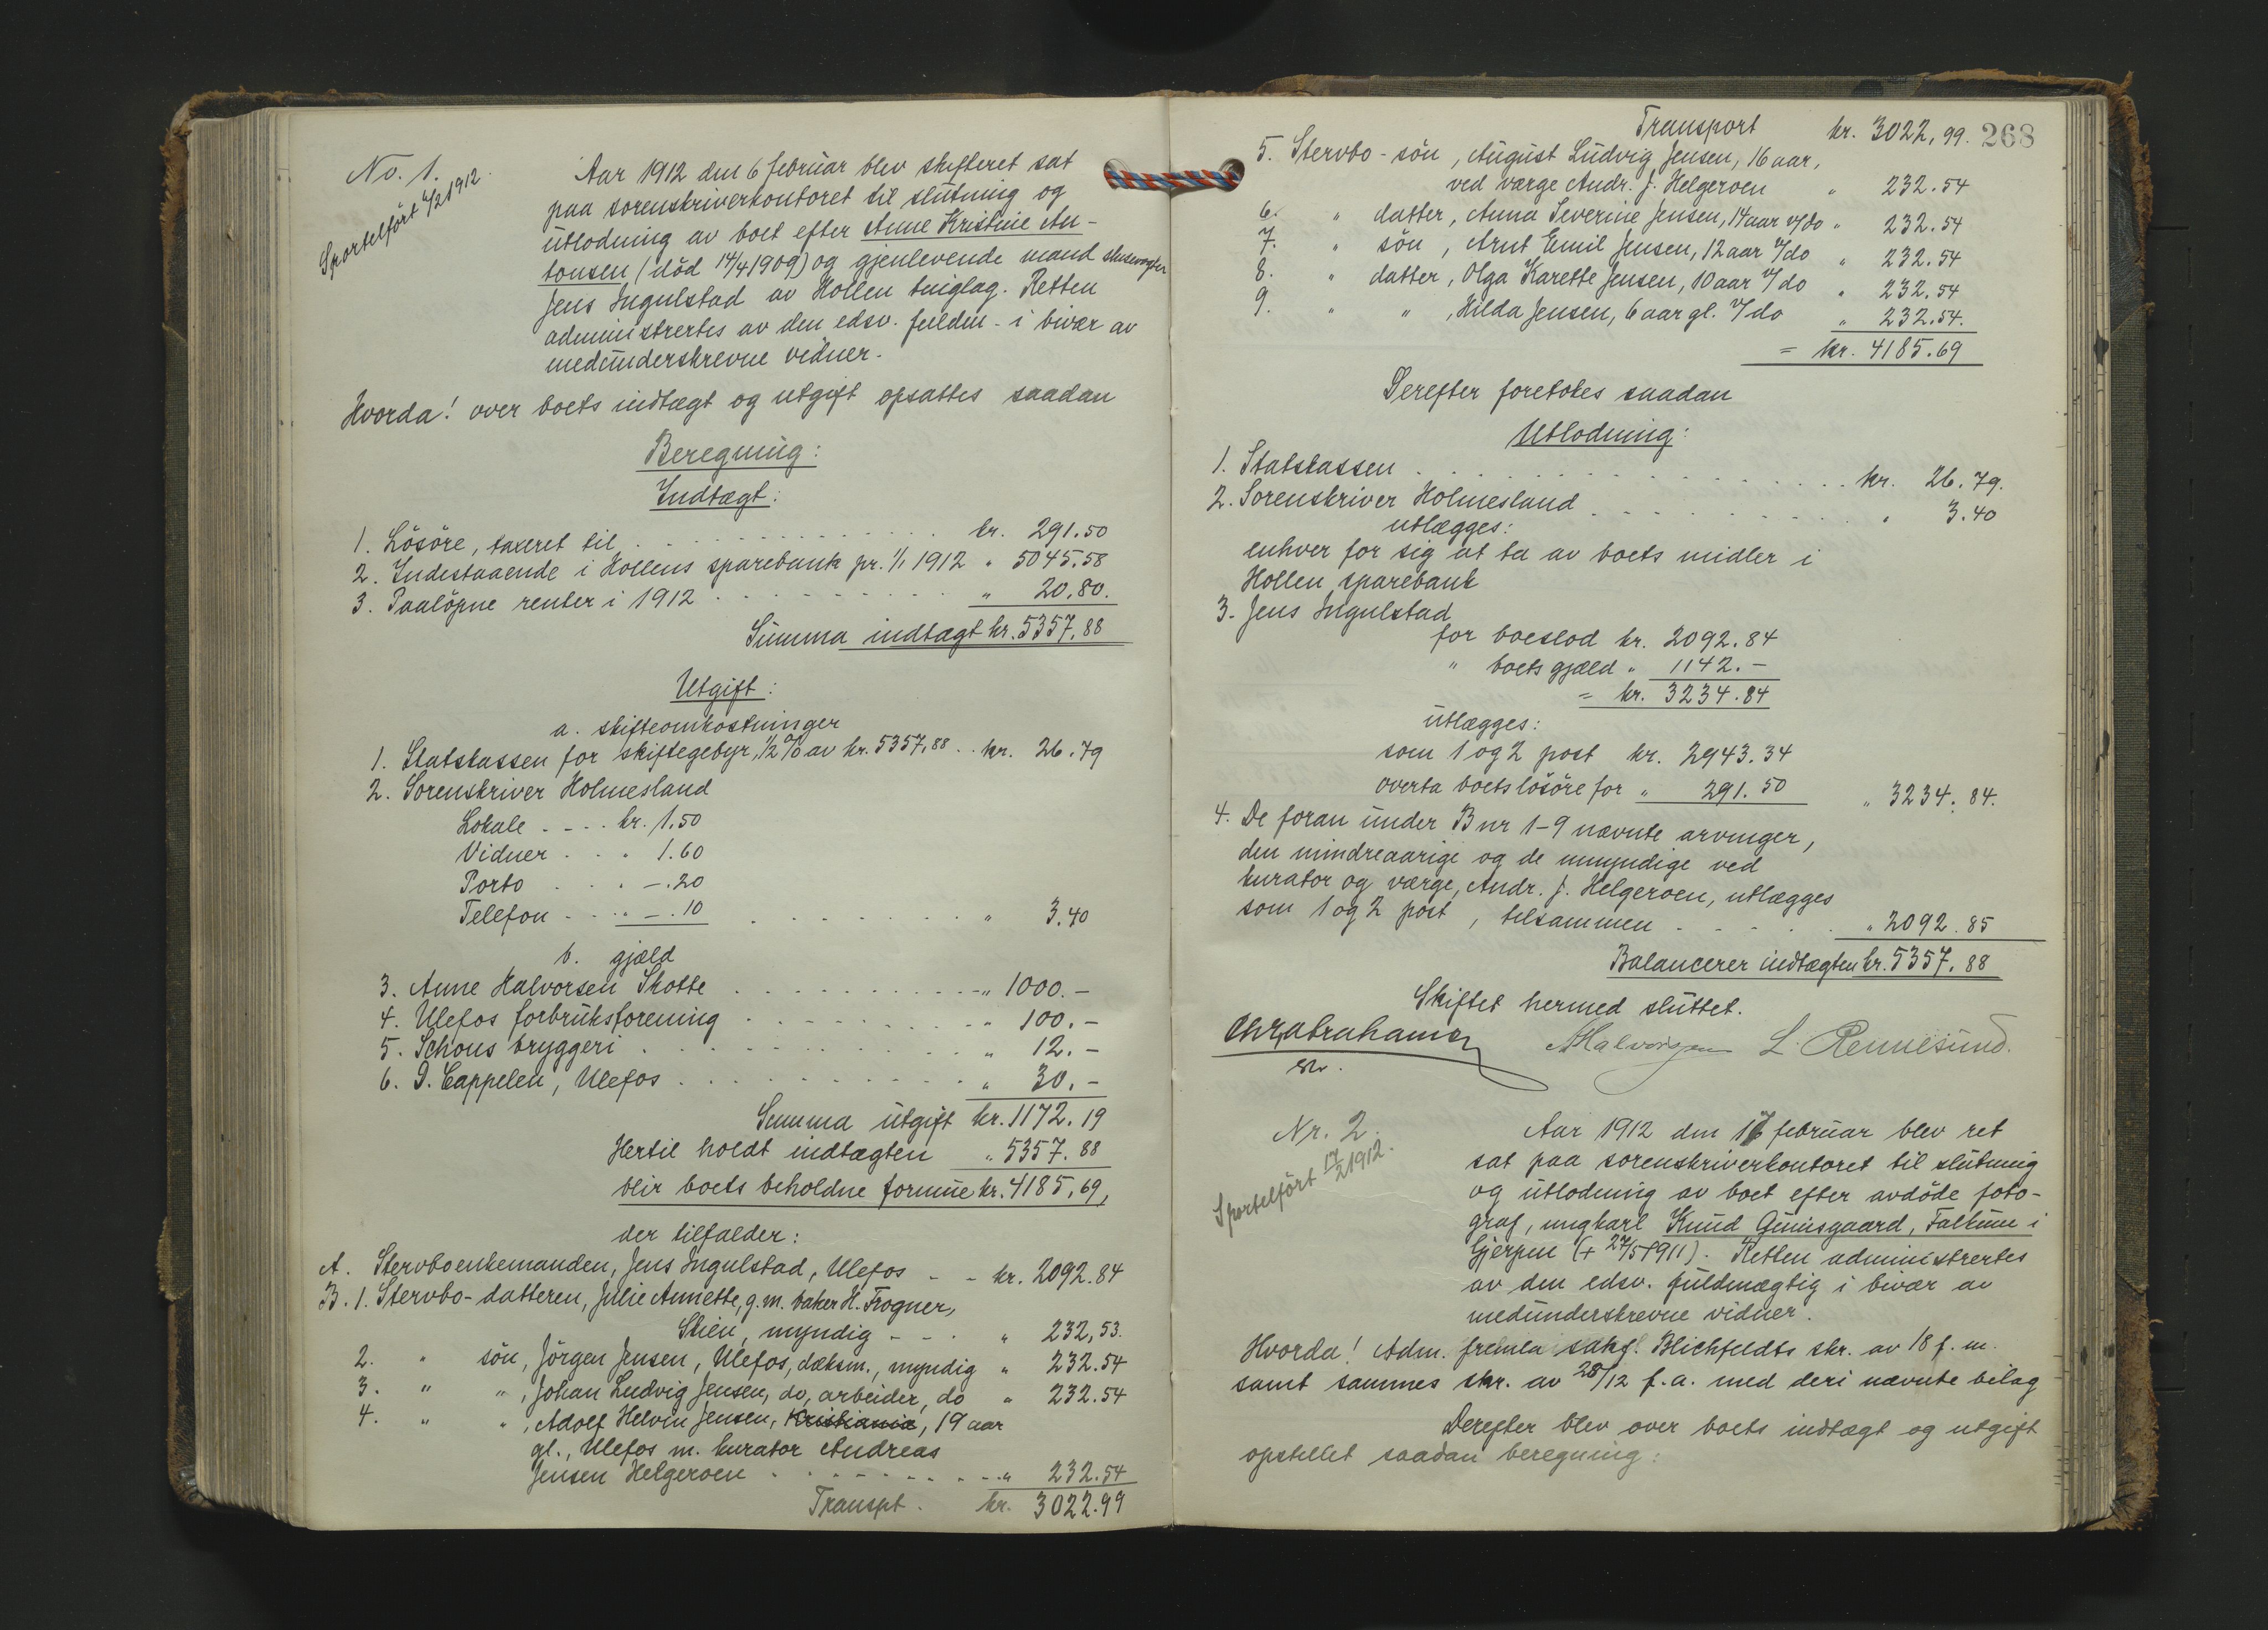 No. 1.
Sportelført 6/2 1912.
Aar 1912 den 6 februar blev skifteret sat
paa sorenskriverkontoret til slutning og
utlodning av boet efter Anne Kristine An-
tonsen (död 14/4 1909) og gjenlevende mand slusevogter
Jens Ingulstad av Hollen tinglag. Retten
administrertes av den edsv. fuldm. i bivær av
medunderskrevne vidner.
Hvorda! over boets indtægt og utgift opsattes saadan
Beregning:
Indtægt:
1. Lösöre, taxeret til . . . . kr. 291.50
2. Indestaaende i Hollens sparebank pr. 1/1 1912 " 5045.58
3. Paalöpne renter i 1912 . . . . " 20.80.
Summa indtægt kr. 5357.88
Utgift:
a. skifteomkostninger
1. Statskassen for skiftegebyr, 1/2 % av kr. 5357,88 . . kr. 26.79
2. Sorenskriver Holmesland
Lokale . . . . kr. 1.50
Vidner . . . " 1.60
Porto . . . " —.20
Telefon . . . " —.10 . . . . " 3.40
b. gjæld
3. Anne Halvorsen Skotte . . . . " 1000.—
4. Ulefos forbruksforening . . . . " 100.—
5. Schous bryggeri . . . . " 12.—
6. D. Cappelen, Ulefos . . . . " 30.—
Summa utgift kr. 1172.19
Hertil holdt indtægten " 5357.88
blir boets beholdne formue kr. 4185,69,
der tilfalder:
A. Stervboenkemanden, Jens Ingulstad, Ulefos - - kr. 2092.84
B. 1. Stervbo-datteren, Julie Annette, g.m. baker H. Frogner,
Skien, myndig - - . " 232,53.
2. " sön, Jörgen Jensen, Ulefos, dæksm., myndig " 232.54
3. " " , Johan Ludvig Jensen, do, arbeider, do " 232.54
4. " " , Adolf Helvin Jensen, Kristiania, 19 aar
gl., Ulefos m. kurator Andreas
Jensen Helgeroen . . . . " 232.54
Transpt. kr. 3022.99
Transport kr. 3022,99. 268
5. Stervbo-sön, August Ludvig Jensen, 16 aar,
ved værge Andr. J. Helgeroen " 232.54
6. " datter, Anna Severine Jensen, 14 aar v/do " 232.54
7. " sön, Arnt Emil Jensen, 12 aar v/do " 232.54
8. " datter, Olga Karette Jensen, 10 aar v/do " 232.54
9. " " , Hilda Jensen, 6 aar gl. v/do " 232.54.
= kr. 4185.69
Derefter foretokes saadan
Utlodning:
1. Statskassen . . . . kr. 26.79.
2. Sorenskriver Holmesland . . . . " 3.40
utlægges:
enhver for sig at ta av boets midler i
Hollen sparebank
3. Jens Ingulstad
for boeslod kr. 2092.84
" boets gjæld " 1142.—
= kr. 3234.84
utlægges:
som 1 og 2 post kr. 2943.34
overta boets lösöre for " 291.50 " 3234.84.
4. De foran under B nr 1-9 nævnte arvinger,
den mindreaarige og de umyndige ved
kurator og værge, Andr. J. Helgeroen, utlægges
som 1 og 2 post, tilsammen . . . . " 2092.85
Balancerer indtægten kr. 5357.88
Skiftet hermed sluttet.
Chr Abrahamsen AHalvorsen L. Rennesund.
Nr. 2.
Sportelført 17/2 1912.
Aar 1912 den 17 februar blev ret
sat paa sorenskriverkontoret til slutning
og utlodning av boet efter avdöde foto-
graf, ungkarl Knud Gunisgaard, Falkum i
Gjerpen (+ 27/5 1911). Retten administrertes
av den edsv. fuldmægtig i bivær av
medunderskrevne vidner.
Hvorda! Adm. fremla sakf. Blichfeldts skr. av 18 f. m.
samt sammes skr. av 28/12 f.a. med deri nævnte bilag
Derefter blev over boets indtægt og utgift
opstillet saadan beregning: